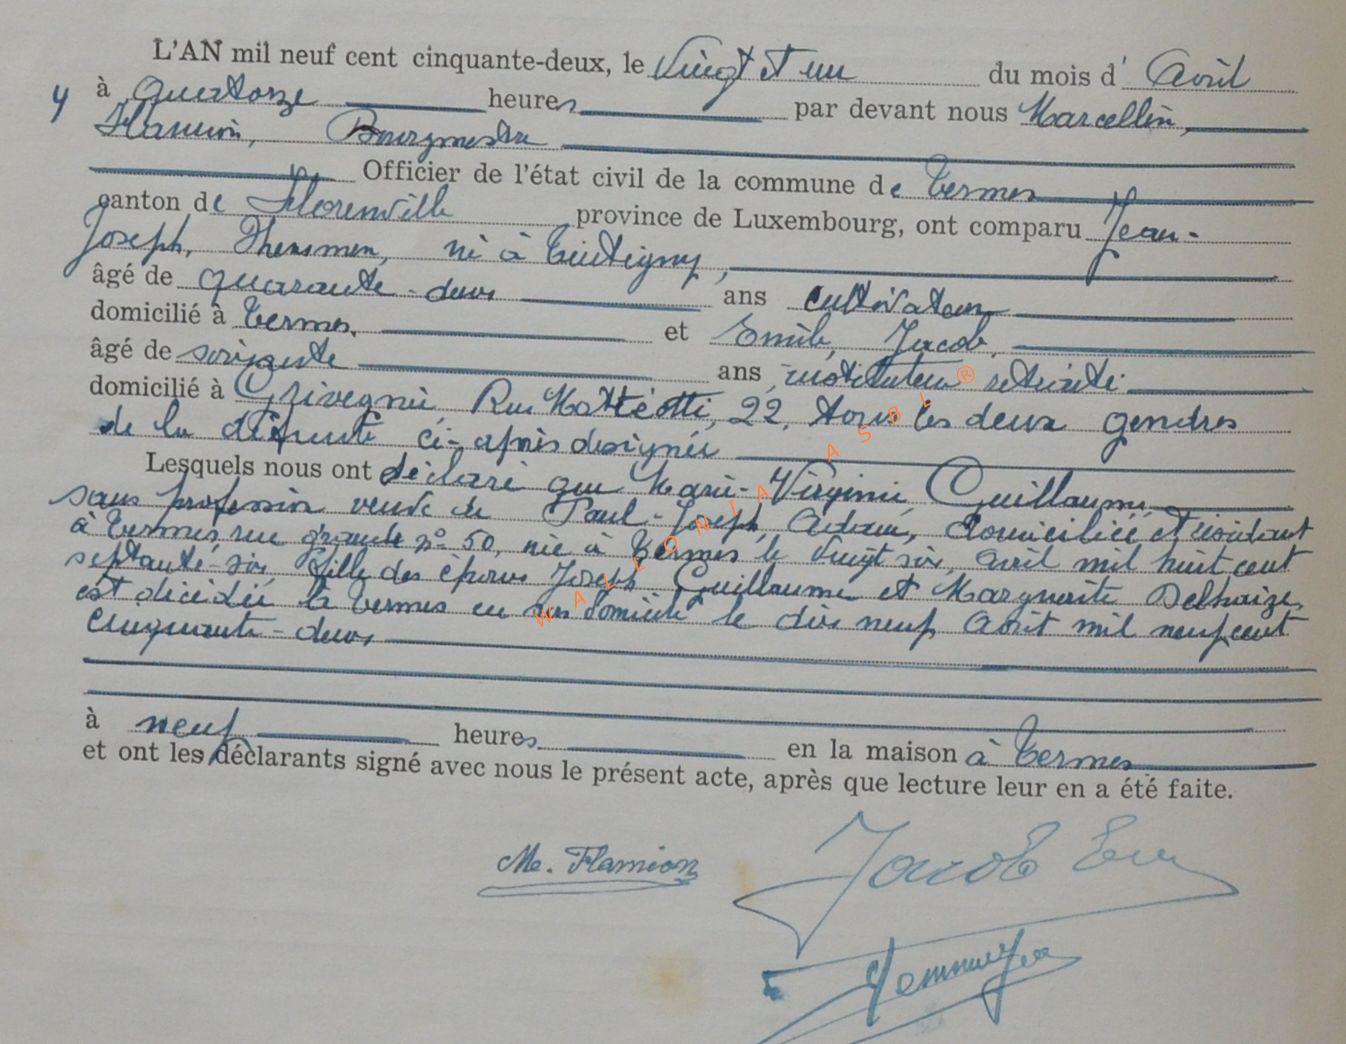 L'AN mil neuf cent cinquante-deux, le Vingt et un du mois d' Avril
4 à Quatorze heures par devant nous Marcellin,
Flamion, Bourgmestre
Officier de l'état civil de la commune de Termes
canton de Florenville province de Luxembourg, ont comparu Jean-
Joseph, né à Tintigny,
âgé de quarante-deux ans cultivateur
domicilié à Termes, et Emile, Jacob,
âgé de soixante ans, instituteur retraité
domicilié à Grivegnée, Rue Mattéotti, 22, tous les deux gendres
de la défunte ci-après designée
Lesquels nous ont déclaré que Marie-Virginie, Guillaume,
sans profession veuve de Paul-Joseph, Adam, domiciliée et résidant
à Termes, rue grande n° 50, née à Termes le Vingt six, avril mil huit cent
septante-six, fille des époux Joseph Guillaume et Marguerite Delhaize,
est décédée à Termes en son domicile le dix neuf Avril mil neuf cent
cinquante-deux,
à neuf heures en la maison à Termes
et ont les déclarants signé avec nous le présent acte, après que lecture leur en a été faite.
M. Flamion
Jacob Em
WALLONIA ASBL ®